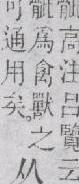 骴高注呂覽云
骴爲禽獸之从
可通用矣。